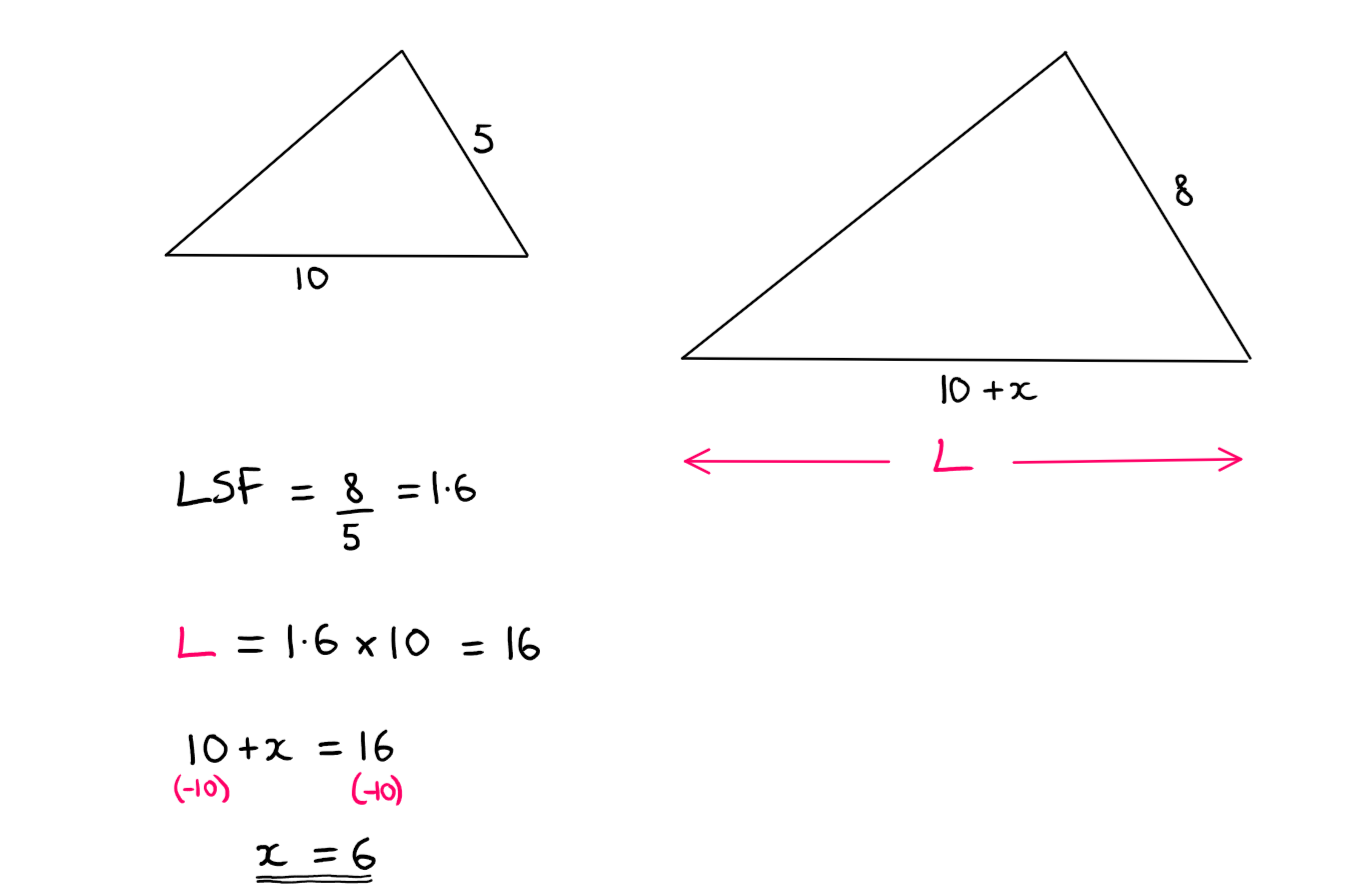 5
10
8
10 + x
L
LSF = 8/5 = 1·6
L = 1·6 × 10 = 16
10 + x = 16
(-10) (-10)
x = 6